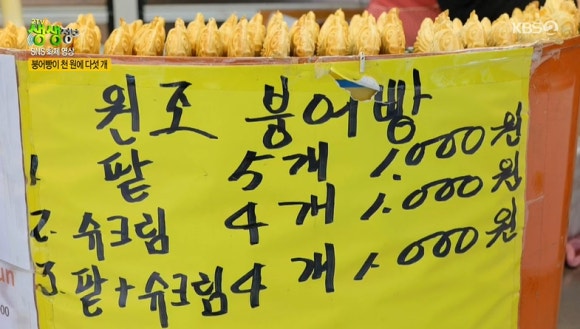 2TV 생생정보
SNS 화제 영상
붕어빵이 천 원에 다섯 개
KBS
원조 붕어빵
1. 팥 5개 1.000원
2. 슈크림 4개 1.000원
3. 팥+슈크림 4개 1000원
un
00